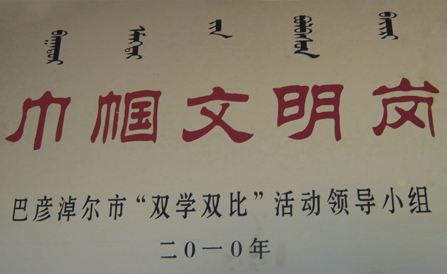 巾帼文明岗
巴彦淖尔市“双学双比”活动领导小组
二〇一〇年